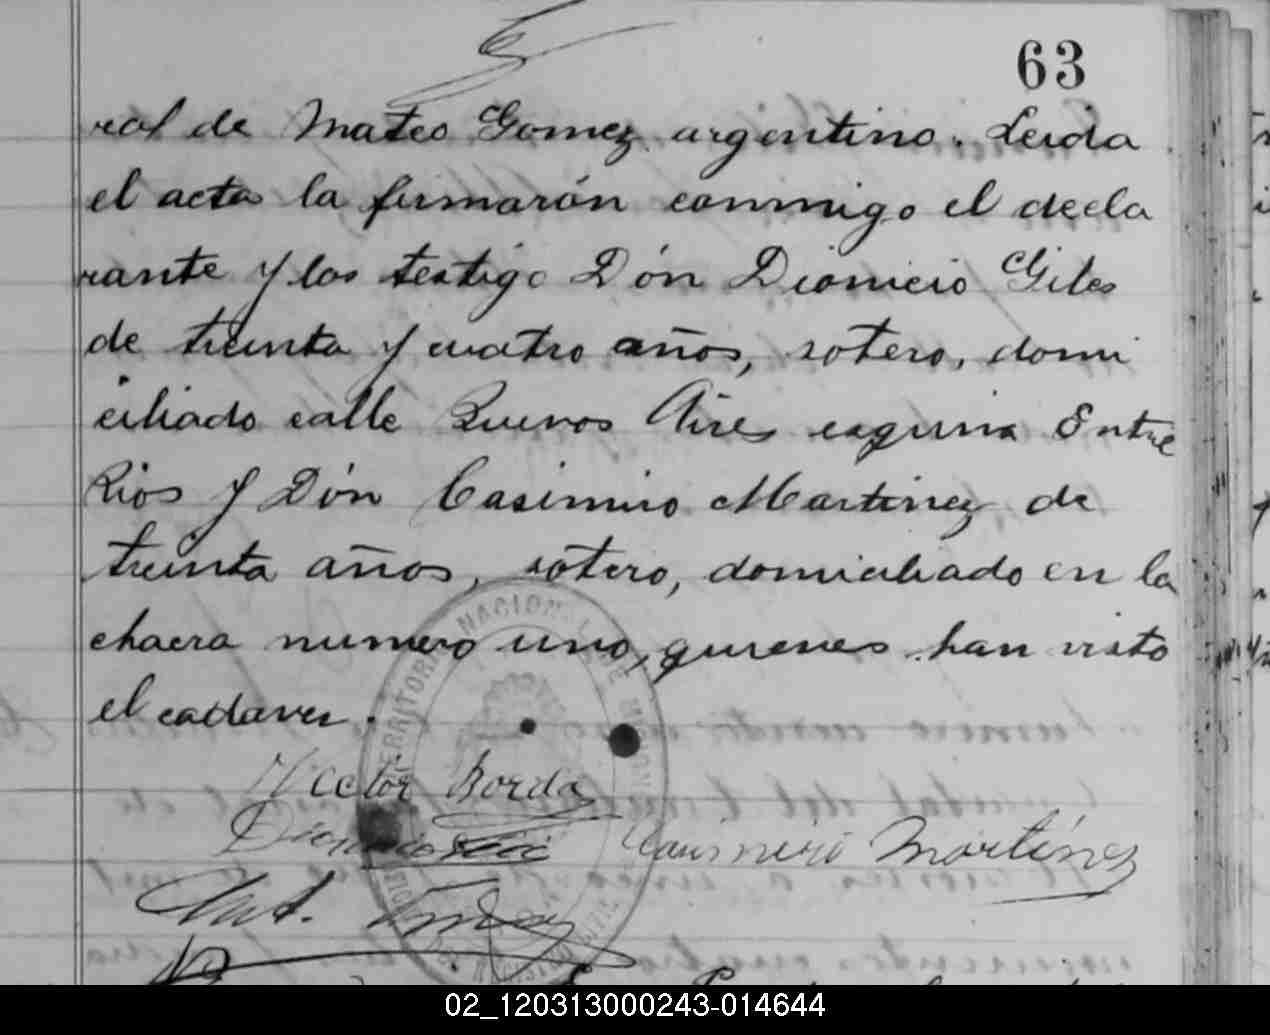 63
ral de Mateo Gomez argentino. Leida
el acta la firmarón conmigo el decla
rante y los testigo Dón Dionicio Giles
de treinta y cuatro años, sotero, domi
ciliado calle Buenos Aires esquina Entre
Rios y Dón Casimiro Martinez de
treinta años, sotero, domiciliado en la
chacra numero uno, quienes han visto
el cadaver.
Victor Borda
Casimiro Martínez
TERRITORIO NACIONAL DE MISIONES
02_120313000243-014644